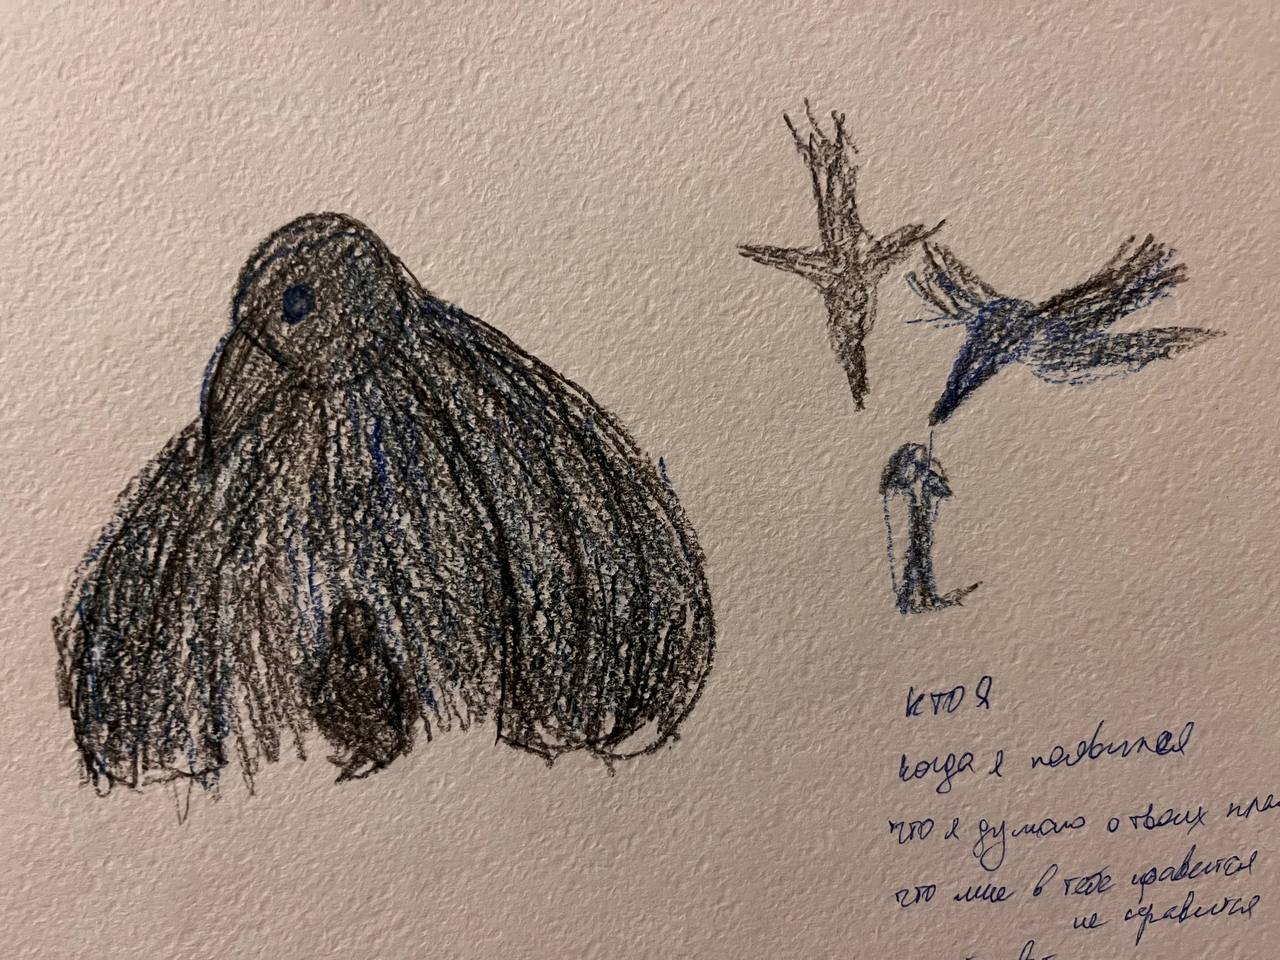 кто я
когда я появился
что я думаю о твоих
что мне в тебе нравится
не нравится